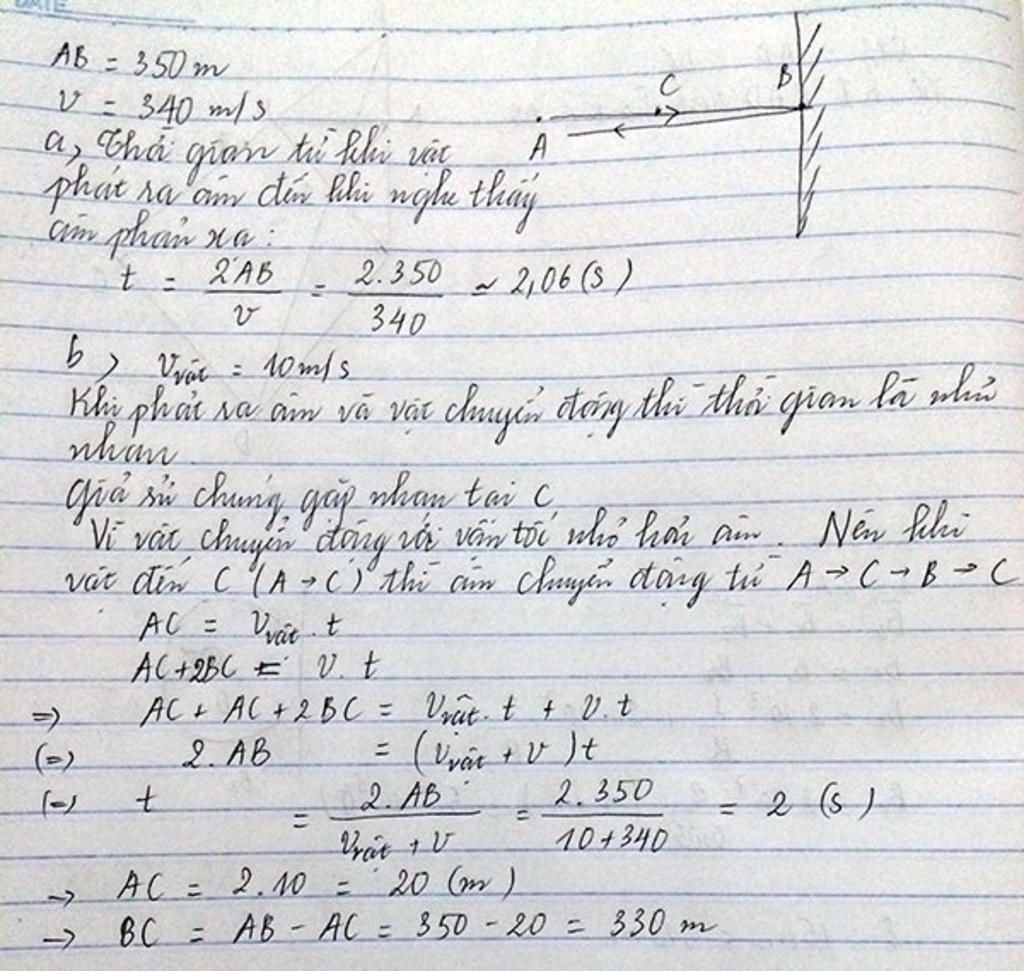 DATE
AB = 350 m
v = 340 m/s
a, Thời gian từ khi vật
phát ra âm đến khi nghe thấy
âm phản xạ :
t = 2AB / v = 2.350 / 340 ≈ 2,06 (s)
b, v vật = 10 m/s
Khi phát ra âm và vật chuyển động thì thời gian là như
nhau
Giả sử chúng gặp nhau tại C
Vì vật chuyển động với vận tốc nhỏ hơn âm. Nên khi
vật đến C (A → C) thì âm chuyển động từ A → C → B → C
AC = v vật . t
AC + 2BC = v . t
=> AC + AC + 2BC = v vật . t + v . t
(=) 2 . AB = (v vật + v) t
(=) t = 2 . AB / v vật + v = 2 . 350 / 10 + 340 = 2 (s)
→ AC = 2 . 10 = 20 (m)
→ BC = AB - AC = 350 - 20 = 330 m
A
C
B